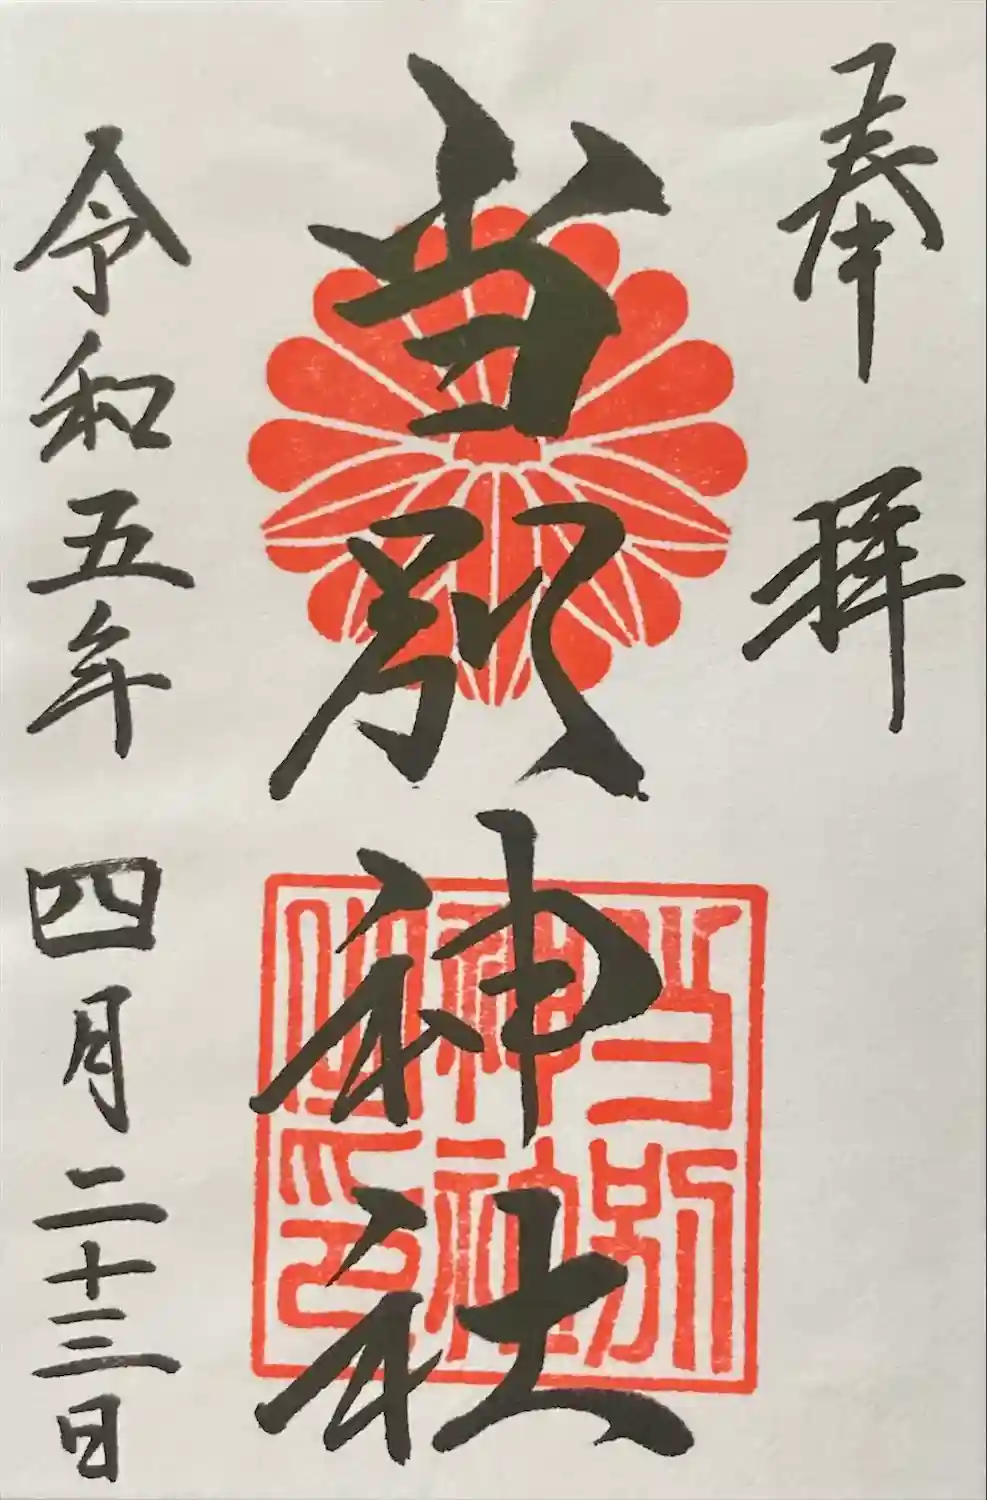 奉拝
当別神社
当別
神社
之印
令和五年四月二十三日